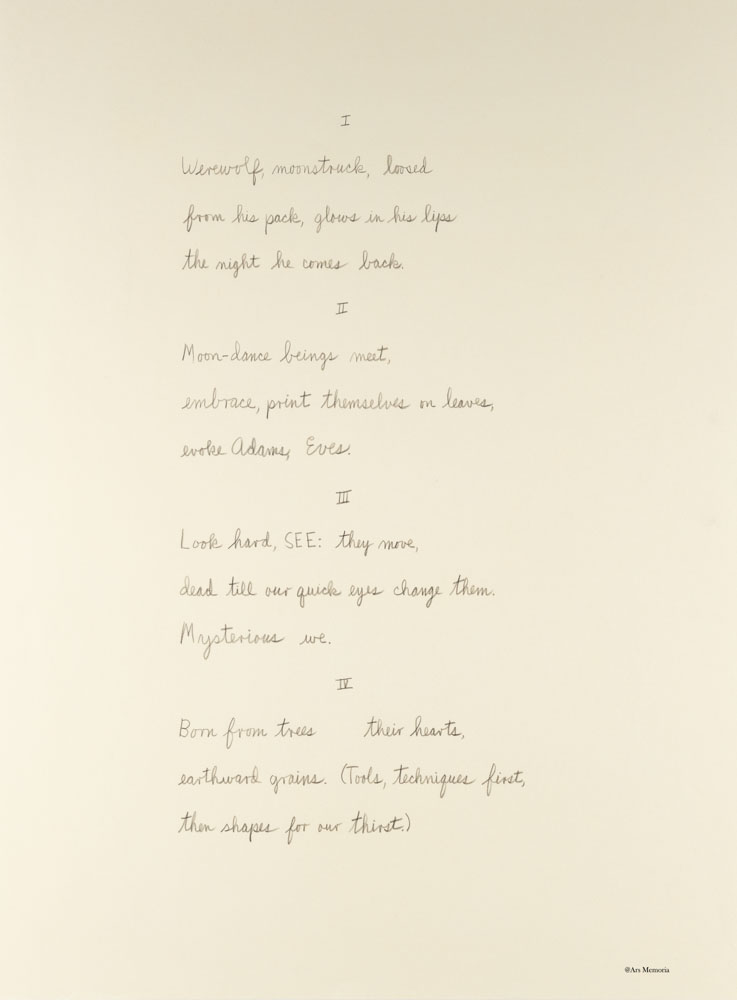 I
Werewolf, moonstruck, loosed
from his pack, glows in his lips
the night he comes back.
II
Moon-dance beings meet,
embrace, print themselves on leaves,
evoke Adams, Eves.
III
Look hard, SEE: they move,
dead till our quick eyes change them.
Mysterious we.
IV
Born from trees their hearts,
earthward grains. (Tools, techniques first,
then shapes for our thirst.)
@Ars Memoria